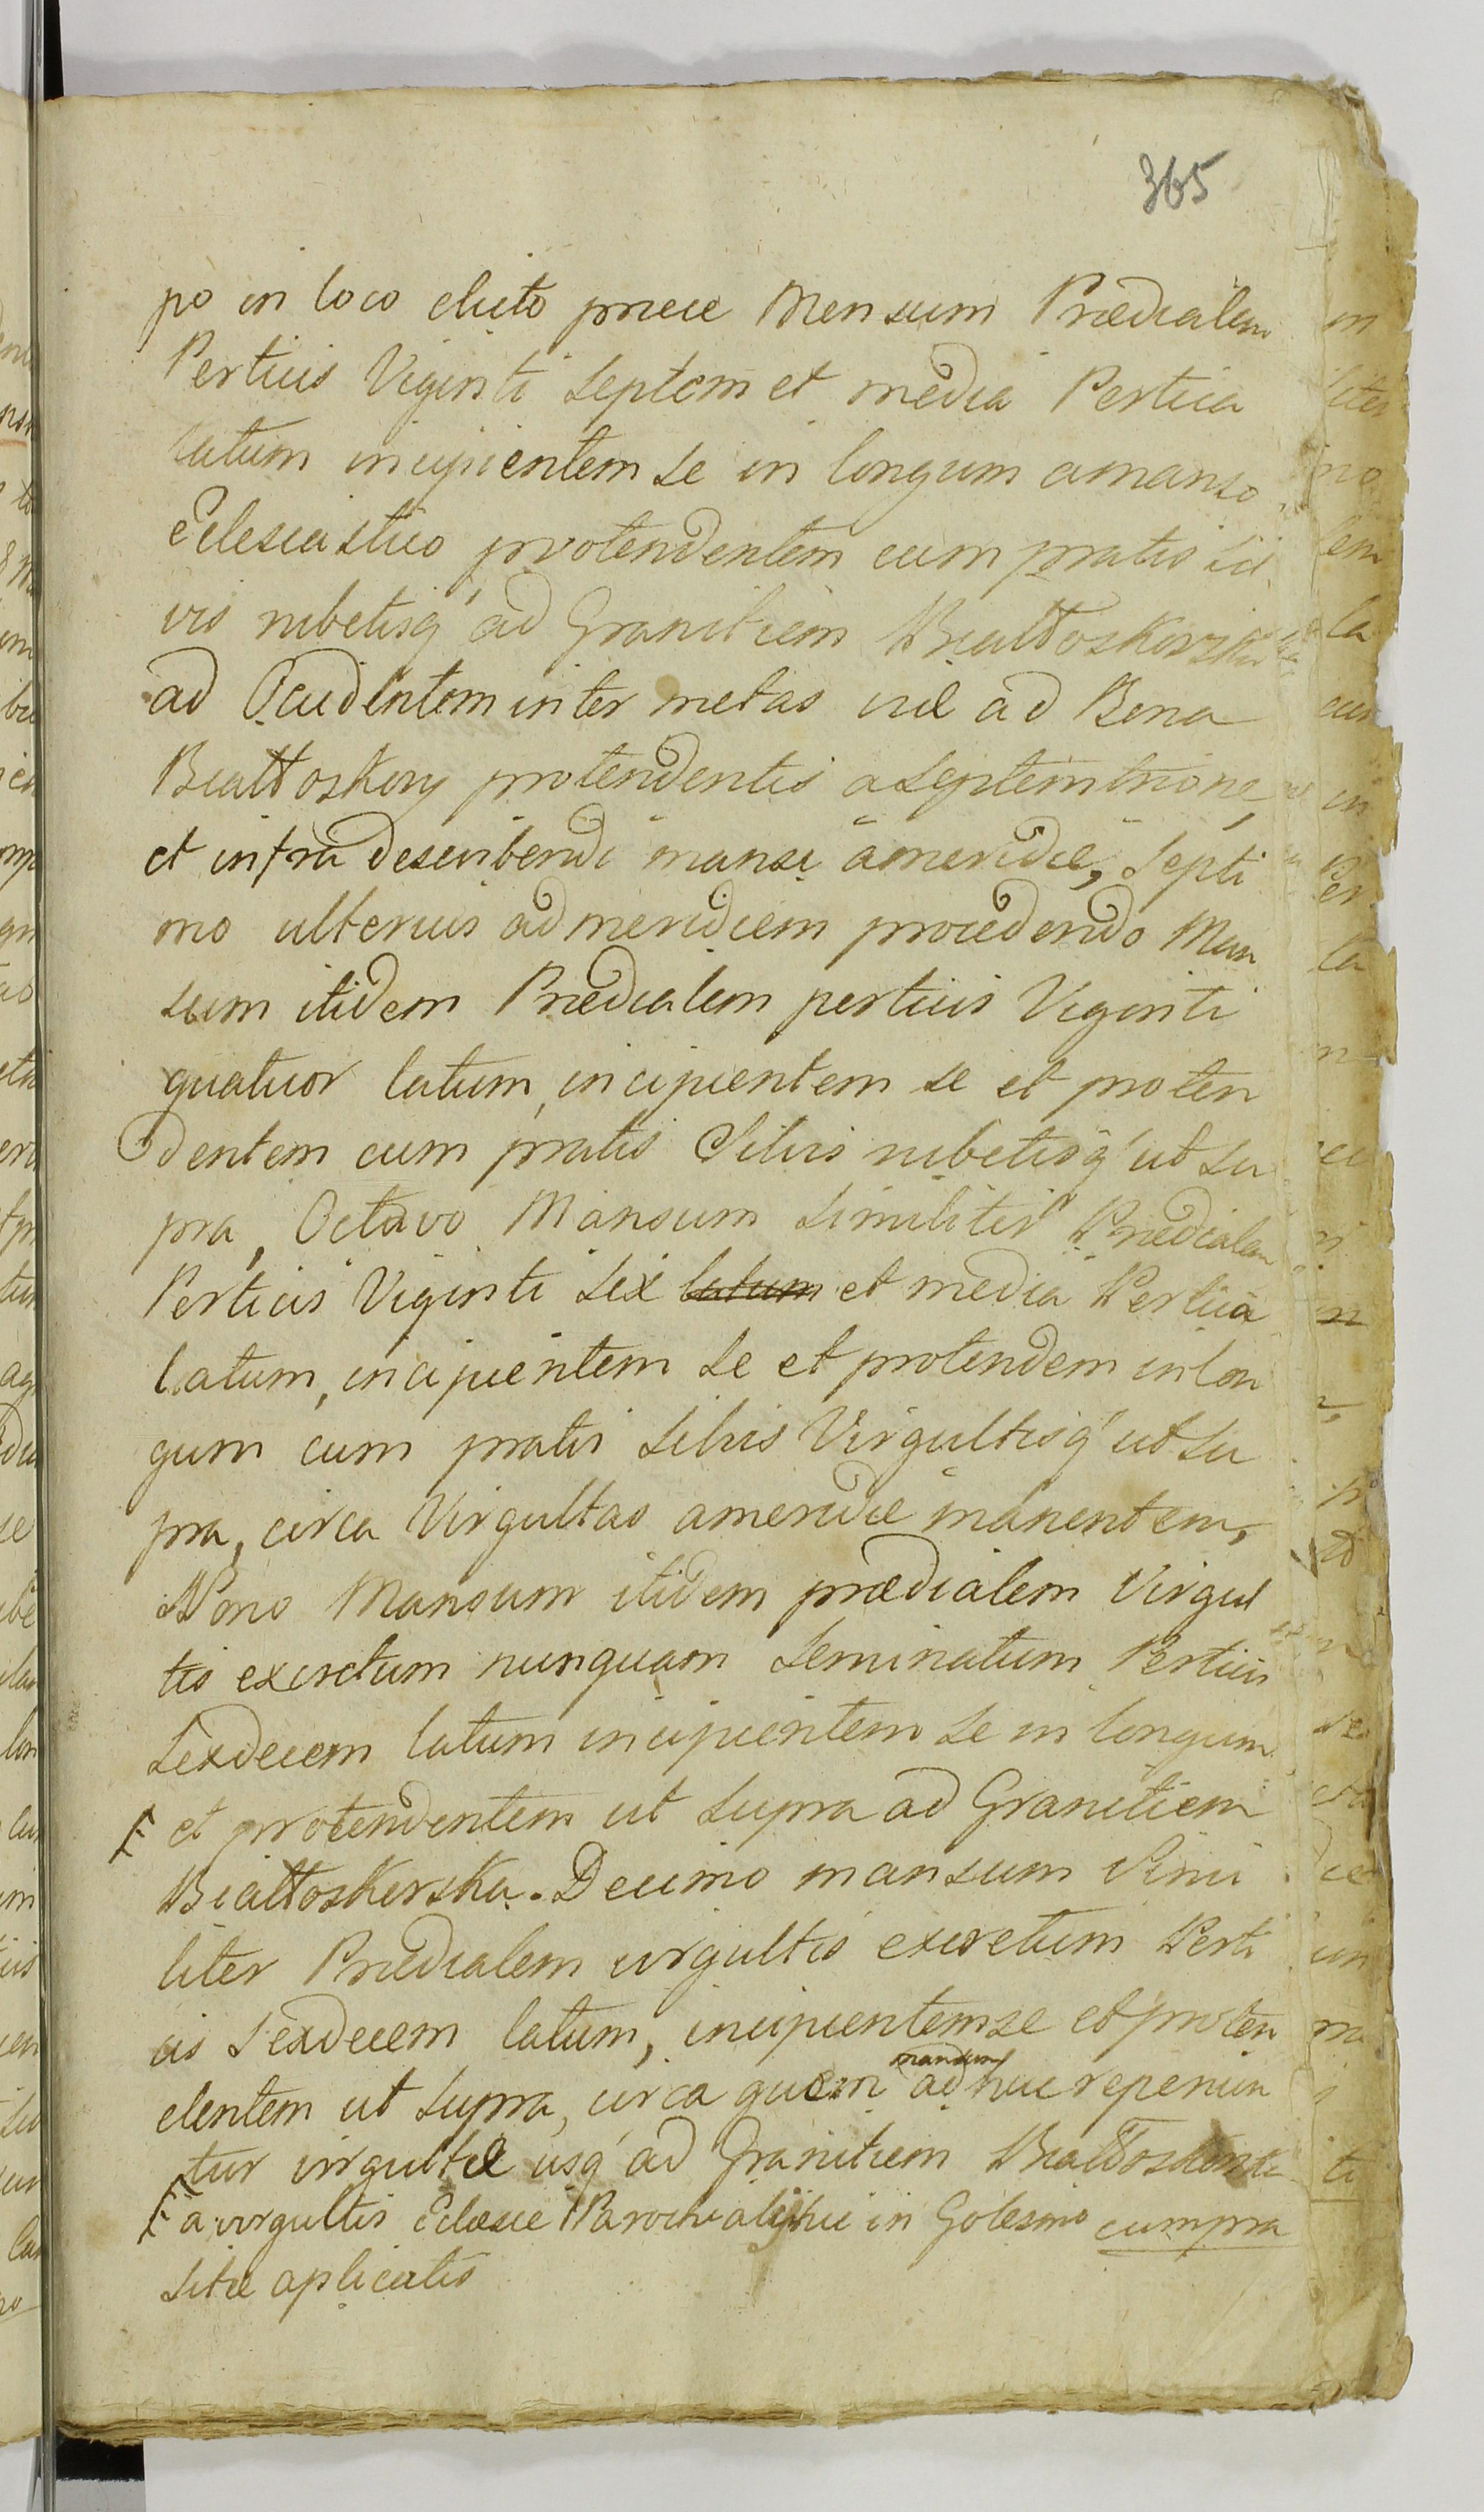 365
po in loco electo preece Mensum Prædialem
Perticis Viginti Septem et media Pertica
latum incipientem se in longum amanso
Eclesiastico protendentem cum pratis Sil
vis rubetisq ad Granitiem Białłoskorska
ad Occidentem inter metas viæ ad Bona
Białłoskory protendentis a Septemtrione,
et infra describendi mansi a meridie, Septi
mo ulterius ad meridiem procedendo Man
sum itidem Prædialem perticis Viginti
quatuor latum, incipientem se et proten
dentem cum pratis Silvis rubetisq ut su
pra, Octavo Mansum similiter Prædialem
Perticis Viginti Sex latum et media Pertica
latum, incipientem se et protendem in lon
gum cum pratis Silvis Virgultisq ut su
pra, circa Virgultas a meridie manentem,
Nono Mansum itidem prædialem Virgul
tis excretum nunquam Seminatum Perticis
Sexdecem latum incipientem se in longum
et protendentem ut supra ad Granitiem
Białłoskorska. Decimo mansum Simi
liter Prædialem virgultis excretum Perti
cis Sexdecem latum, incipientem se et proten
dentem ut supra, circa quem mansum adhuc reperiun
tur virgultæ usq ad Granitiem Białłoskorska
a virgultis Eclesiæ Parochialis huic in Golesino cum pra
sitæ aplicatis